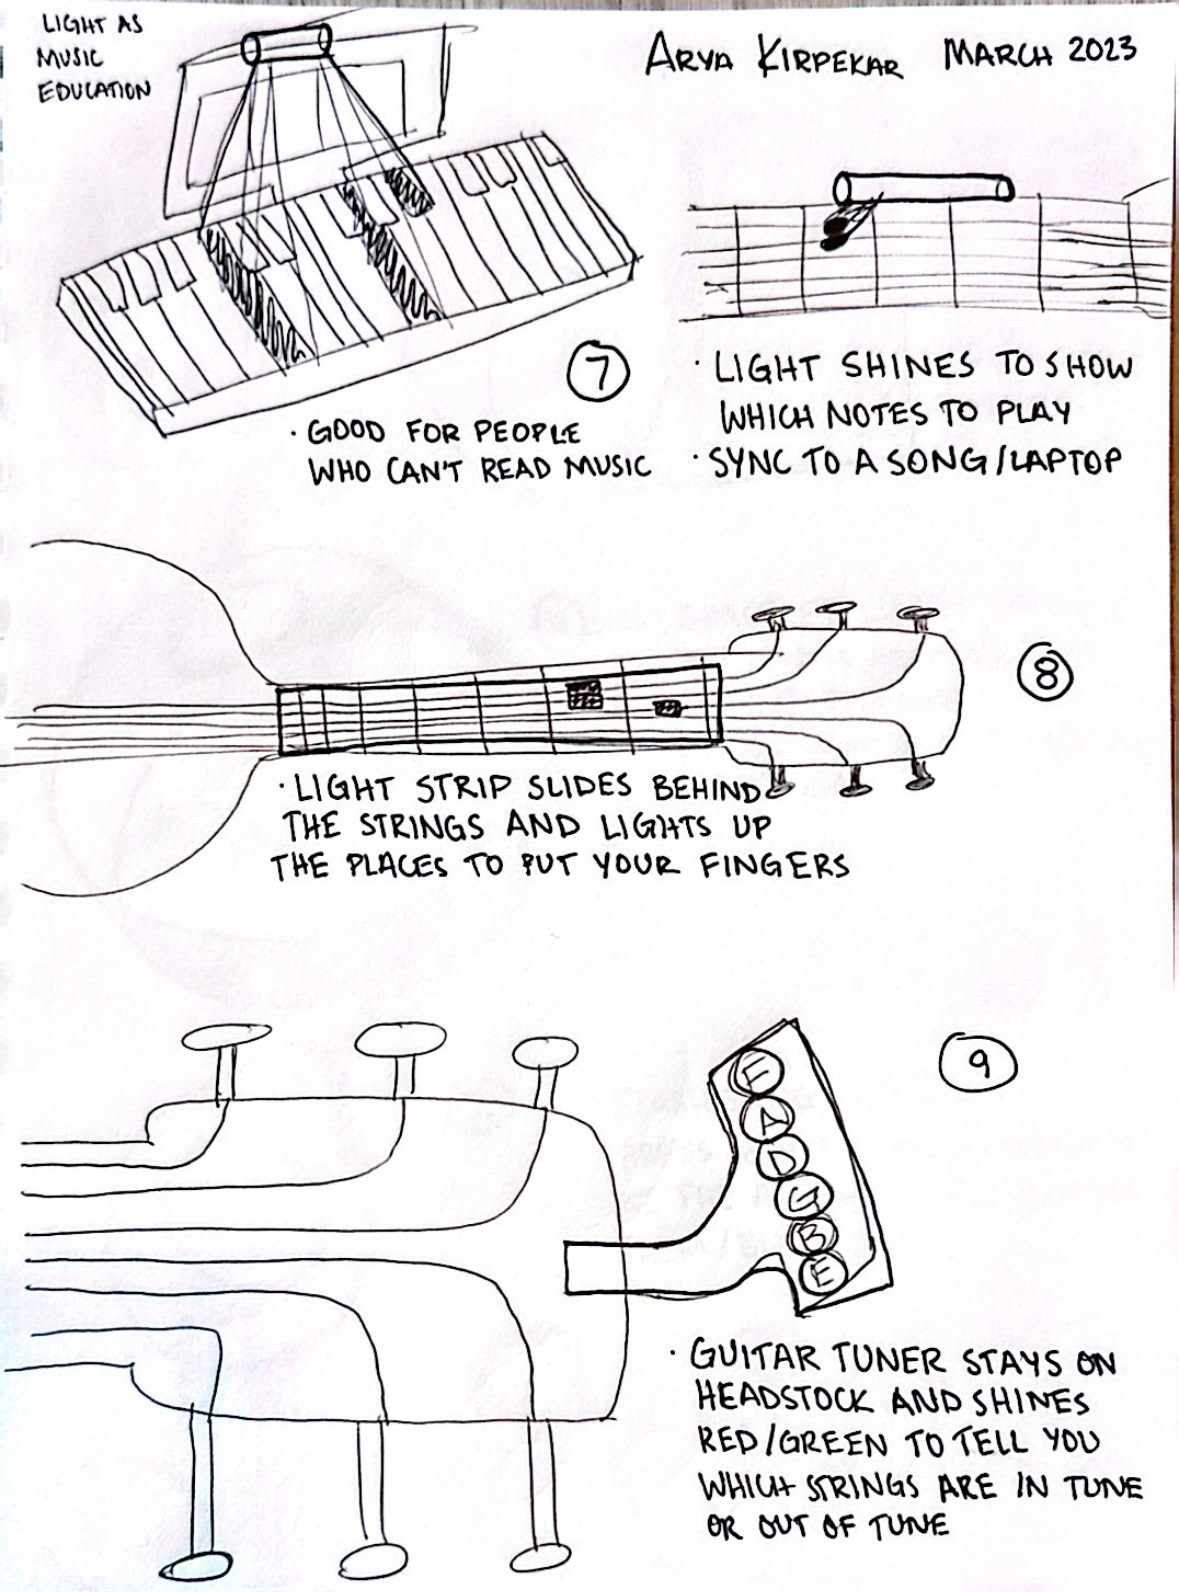 LIGHT AS
MUSIC
EDUCATION
ARYA KIRPEKAR MARCH 2023
7
· GOOD FOR PEOPLE
WHO CAN'T READ MUSIC
· LIGHT SHINES TO SHOW
WHICH NOTES TO PLAY
· SYNC TO A SONG/LAPTOP
8
· LIGHT STRIP SLIDES BEHIND
THE STRINGS AND LIGHTS UP
THE PLACES TO PUT YOUR FINGERS
9
E
A
D
G
B
E
· GUITAR TUNER STAYS ON
HEADSTOCK AND SHINES
RED/GREEN TO TELL YOU
WHICH STRINGS ARE IN TUNE
OR OUT OF TUNE